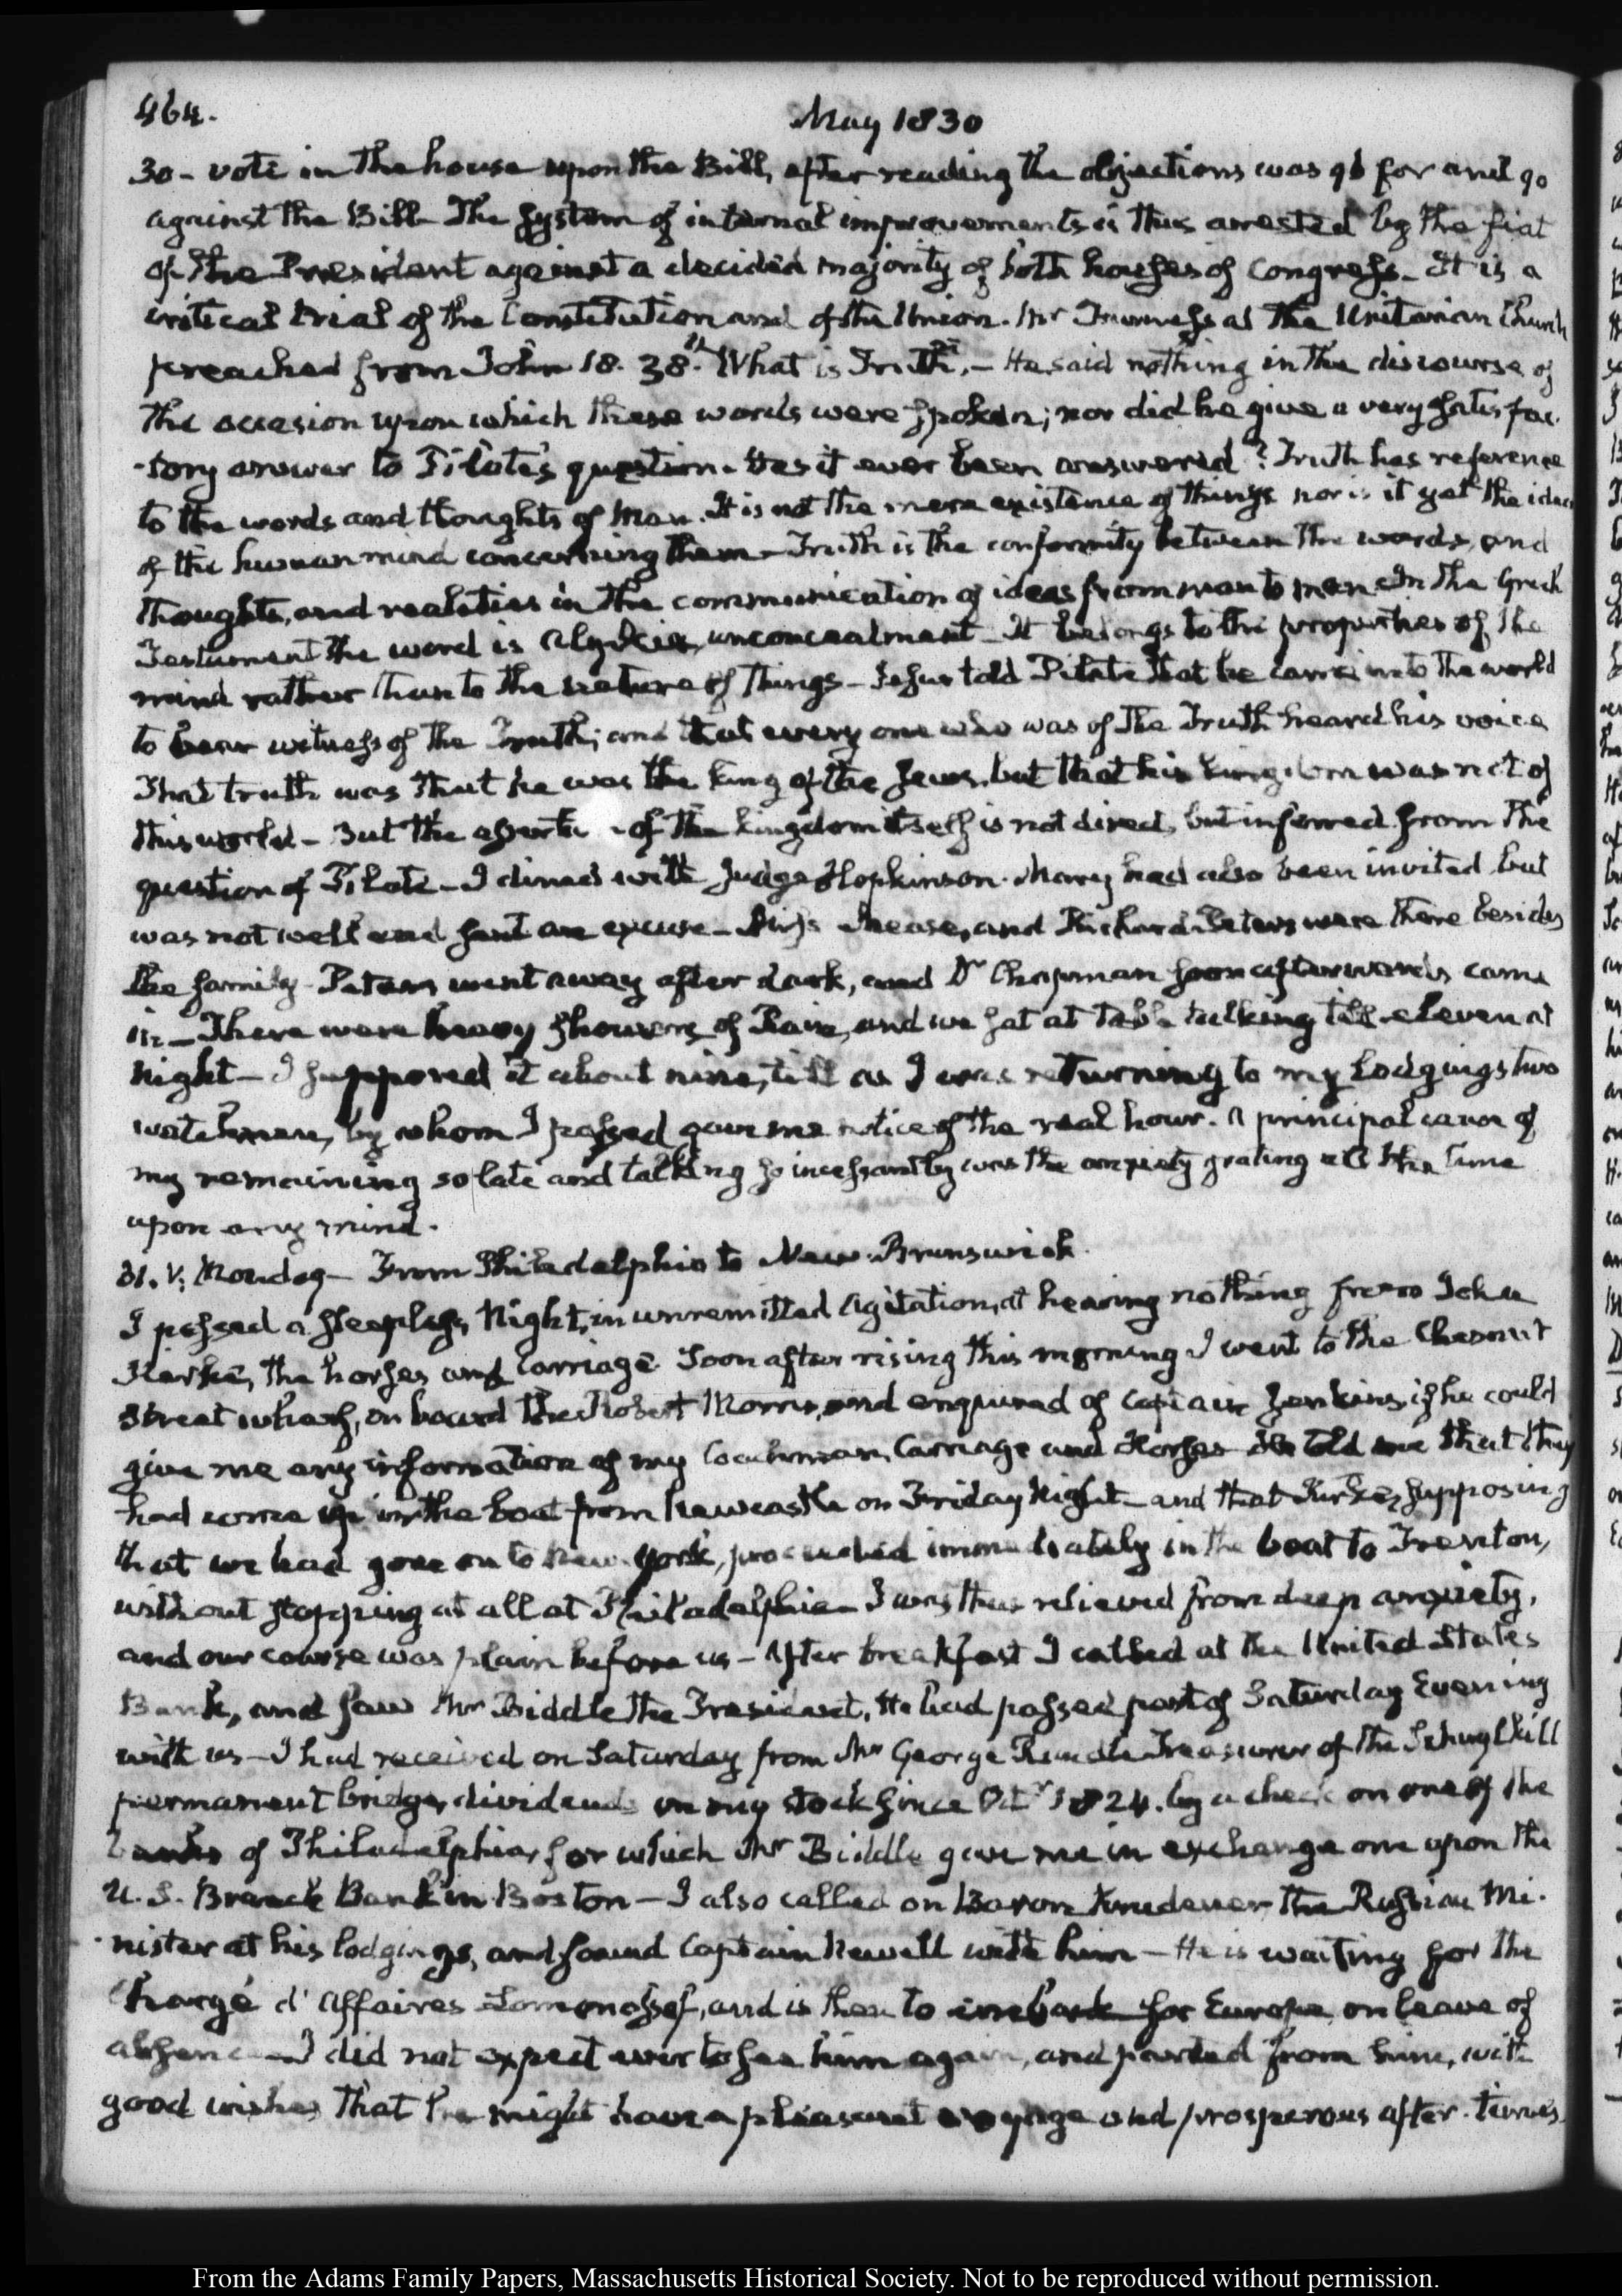 464.
May 1830
30 - vote in the house upon the Bill, after reading the objections was 96 for and 90
against the Bill - The System of internal improvements is thus arrested by the fiat
of the President against a decided majority of both houses of Congress - It is a
critical trial of the Constitution and of the Union. Mr Furness at the Unitarian Church
preached from John 18. 38. "What is Truth" - He said nothing in the discourse of
the occasion upon which these words were spoken; nor did he give a very satisfac-
-tory answer to Pilate's question. Has it ever been answered? Truth has reference
to the words and thoughts of Man. It is not the mere existence of things nor is it yet the ideas
of the human mind concerning them - Truth is the conformity between the words, and
thoughts, and realities in the communication of ideas from man to man. In the Greek
Testament the word is αληθεια, unconcealment - It belongs to the properties of the
mind rather than to the nature of things - Jesus told Pilate that he came into the world
to bear witness of the Truth; and that every one who was of the Truth heard his voice
That truth was that he was the King of the Jews, but that his kingdom was not of
this world - But the of the kingdom itself is not direct, but inferred from the
question of Pilate - I dined with Judge Hopkinson. Mary had also been invited but
was not well and sent an excuse - Miss Mease, and Richard Peters were there besides
the family - Peters went away after dark, and Dr Chapman soon afterwards came
in - There were heavy showers of Rain, and we sat at table talking till eleven at
night - I supposed it about nine, till as I was returning to my lodgings two
watchmen, by whom I passed gave me notice of the real hour. A principal cause of
my remaining so late and talking so incessantly was the anxiety grating all the time
upon my mind.
31. V. Monday - From Philadelphia to New-Brunswick.
I passed a sleepless Night, in unremitted agitation, at hearing nothing from John
Kirke, the horses and carriage. Soon after rising this morning I went to the Chesnut
Street wharf, on board the Robert Morris, and enquired of Captain Jenkins if he could
give me any information of my Coachman, Carriage and Horses He told me that they
had come up in the boat from Newcastle on Friday Night - and that Kirke, supposing
that we had gone on to New-York, proceeded immediately in the boat to Trenton,
without stopping at all at Philadelphia - I was thus relieved from deep anxiety,
and our course was plain before us - After breakfast I called at the United States
Bank, and saw Mr Biddle the President, He had passed part of Saturday Evening
with us - I had received on Saturday from Mr George Rundle Treasurer of the Schuylkill
permanent bridge, dividends on my stock since Octr 1824. by a check on one of the
banks of Philadelphia, for which Mr Biddle gave me in exchange one upon the
U. S. Branch Bank in Boston - I also called on Baron Krudener the Russian Mi-
-nister at his lodgings, and found Captain Newell with him - He is waiting for the
Chargé d'Affaires Lomonossof, and is then to embark for Europe, on leave of
absence - I did not expect ever to see him again, and parted from him, with
good wishes that he might have a pleasant voyage and prosperous after-times
From the Adams Family Papers, Massachusetts Historical Society. Not to be reproduced without permission.